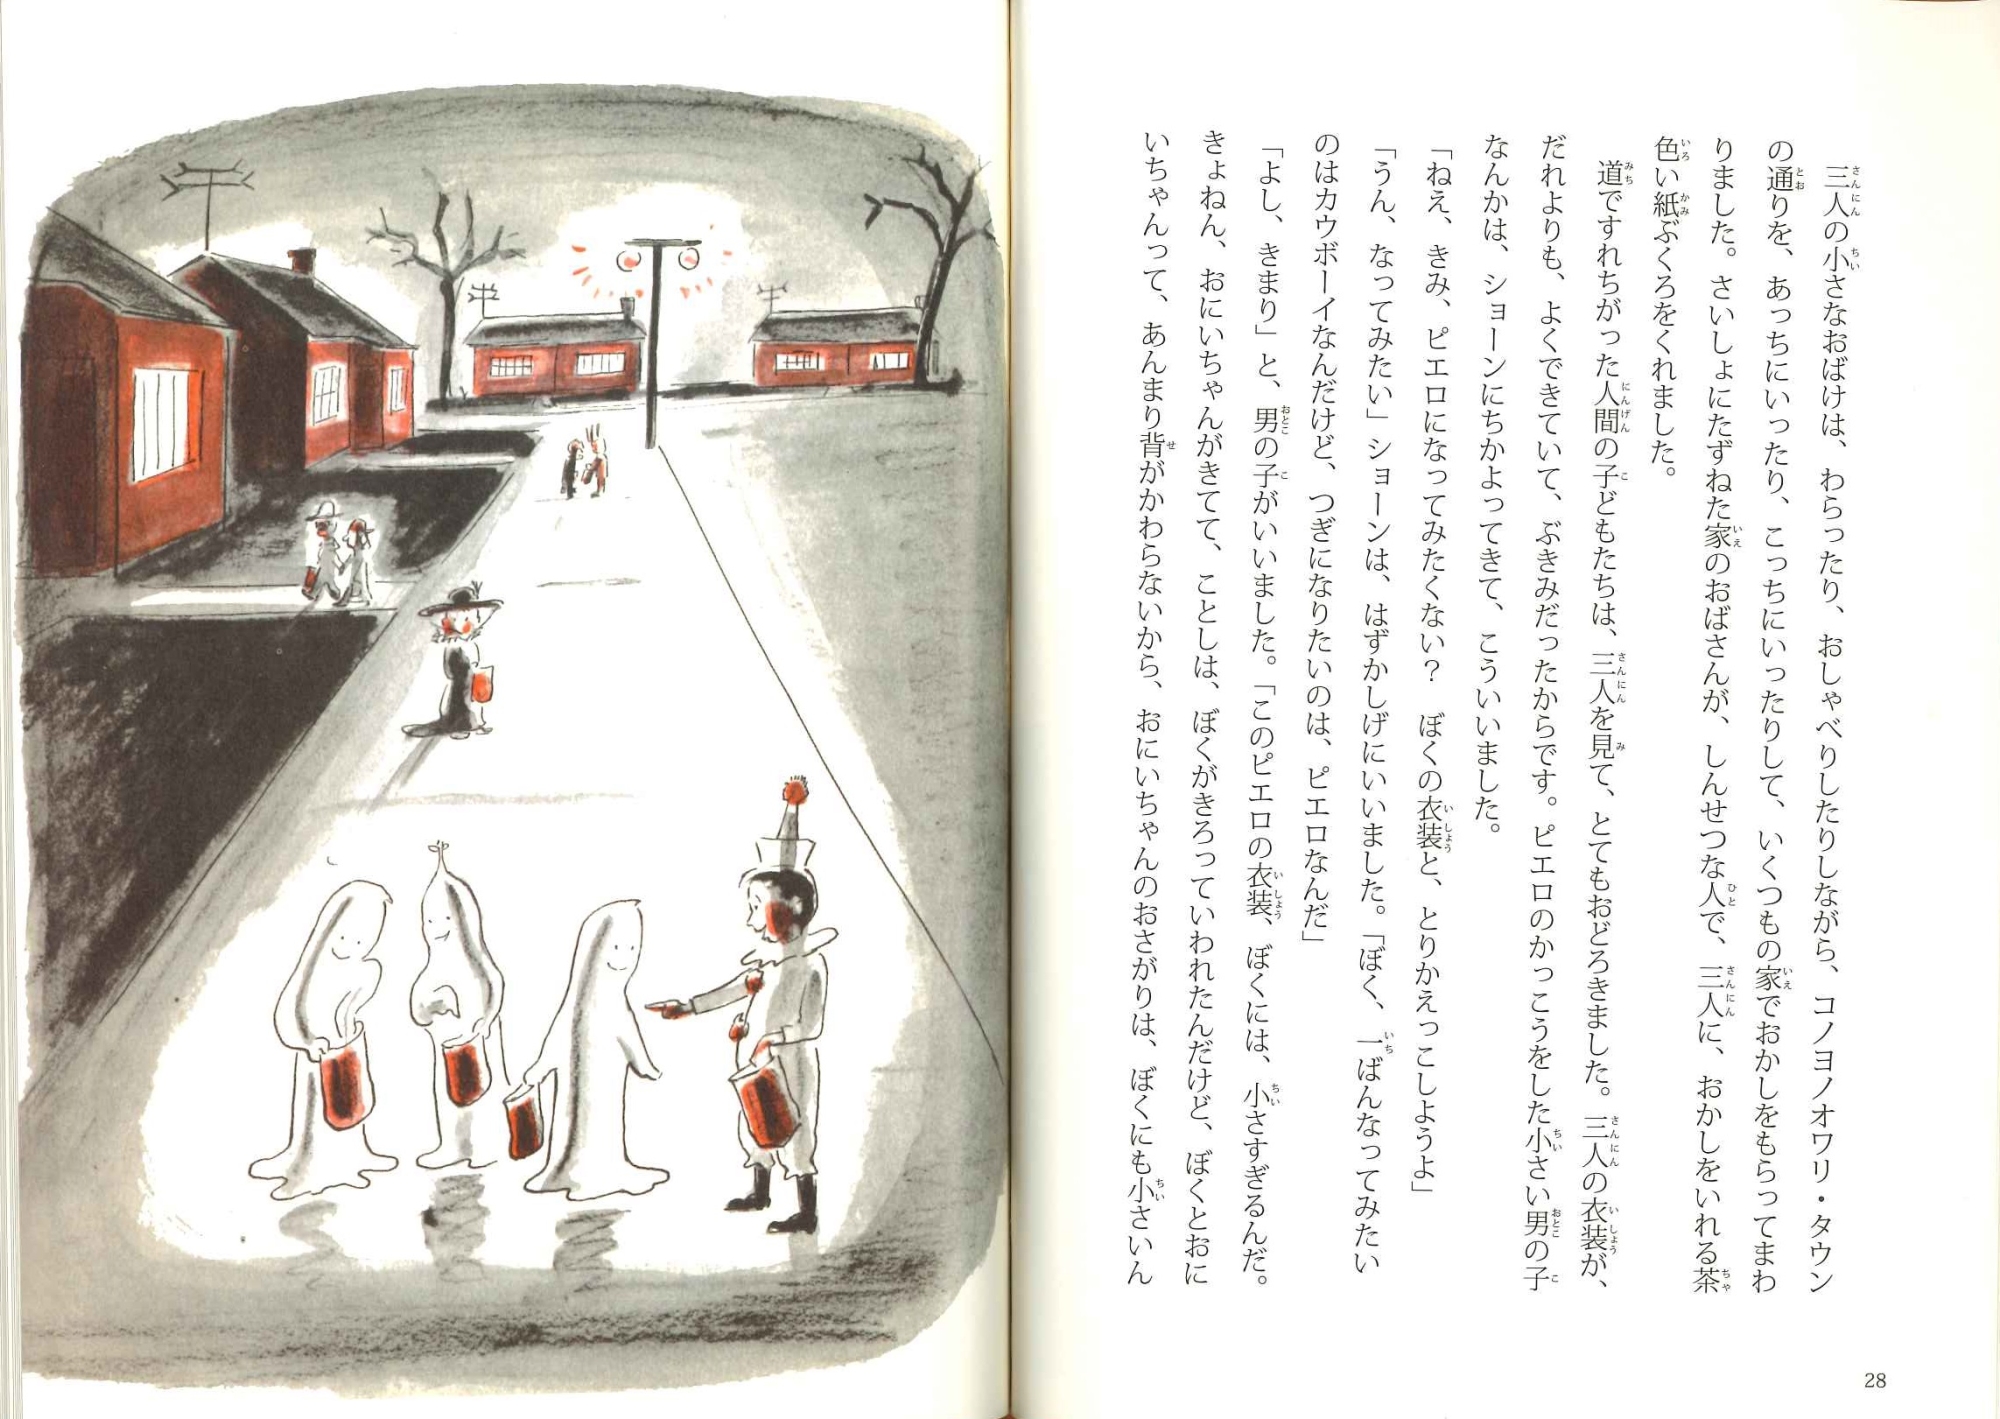 三人の小さなおばけは、わらったり、おしゃべりしたりしながら、コノヨノオワリ・タウン
の通りを、あっちにいったり、こっちにいったりして、いくつもの家でおかしをもらってまわ
りました。さいしょにたずねた家のおばさんが、しんせつな人で、三人に、おかしをいれる茶
色い紙ぶくろをくれました。
道ですれちがった人間の子どもたちは、三人を見て、とてもおどろきました。三人の衣装が、
だれよりも、よくできていて、ぶきみだったからです。ピエロのかっこうをした小さい男の子
なんかは、ショーンにちかよってきて、こういいました。
「ねえ、きみ、ピエロになってみたくない？　ぼくの衣装と、とりかえっこしようよ」
「うん、なってみたい」ショーンは、はずかしげにいいました。「ぼく、一ばんなってみたい
のはカウボーイなんだけど、つぎになりたいのは、ピエロなんだ」
「よし、きまり」と、男の子がいいました。「このピエロの衣装、ぼくには、小さすぎるんだ。
きょねん、おにいちゃんがきてて、ことしは、ぼくがきろっていわれたんだけど、ぼくとおに
いちゃんって、あんまり背がかわらないから、おにいちゃんのおさがりは、ぼくにも小さいん
28